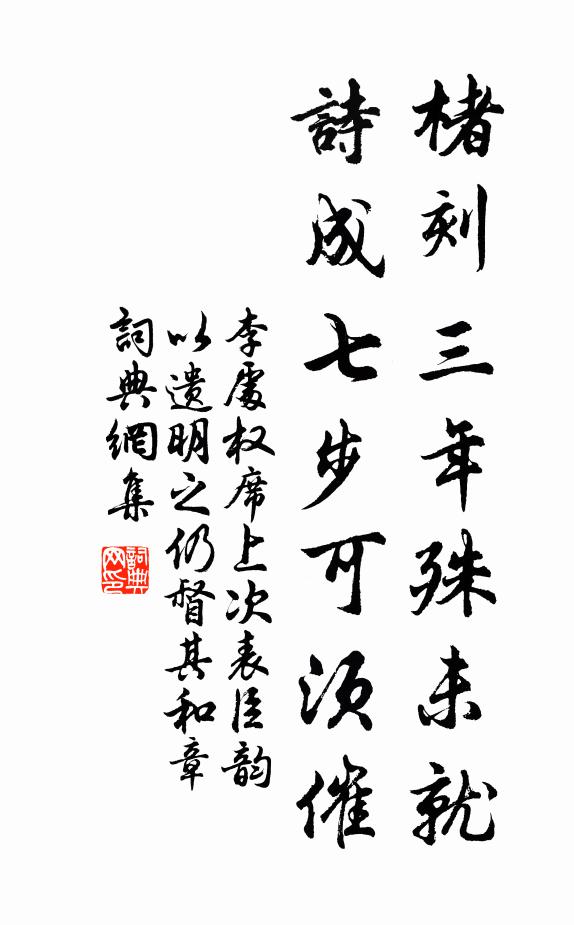 楮刻三年殊未就
詩成七步可須催
李處权席上次表臣韵
以遗明之仍督其和章
詞典網集
詞典网印